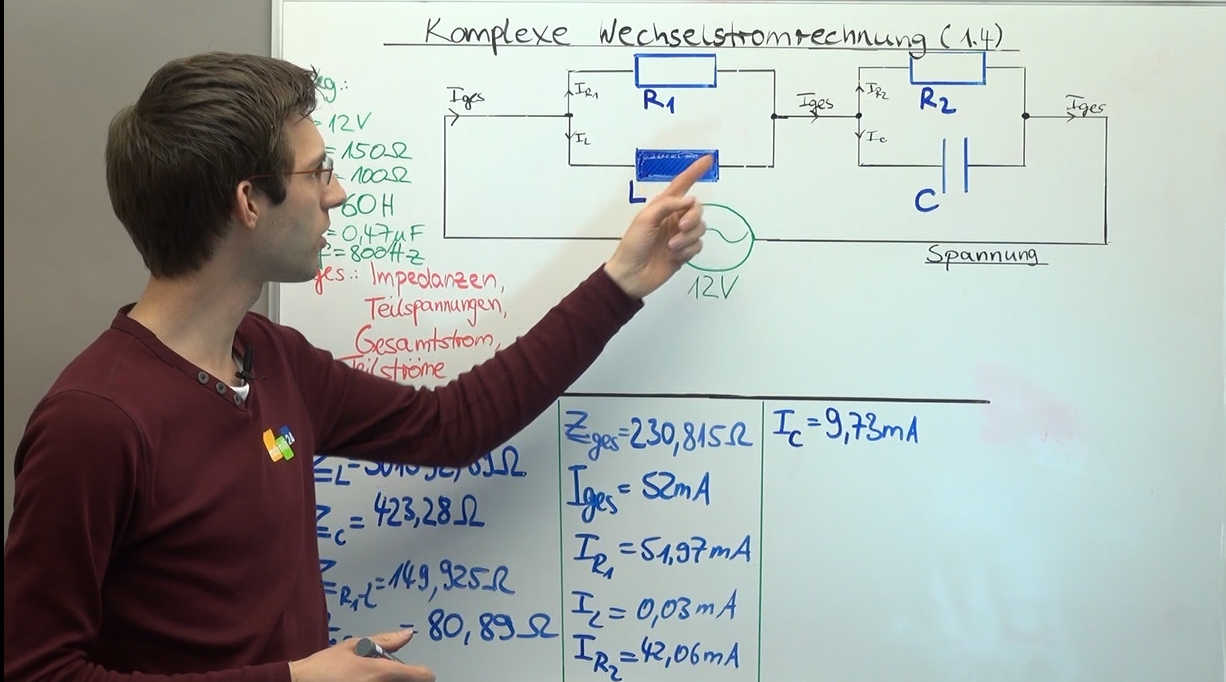 Komplexe Wechselstromrechnung (1.4)
Iges
IR1
R1
IL
L
Iges
IR2
R2
Ic
C
Iges
12V
Spannung
g.:
= 12V
= 150Ω
= 100Ω
60H
= 0,47µF
= 800Hz
ges.: Impedanzen,
Teilspannungen,
Gesamtstrom,
Teilströme
ZL=
Zc= 423,28Ω
ZR1L=149,925Ω
= 80,89Ω
Zges=230,815Ω
Iges= 52mA
IR1=51,97mA
IL= 0,03mA
IR2=42,06mA
Ic=9,73mA